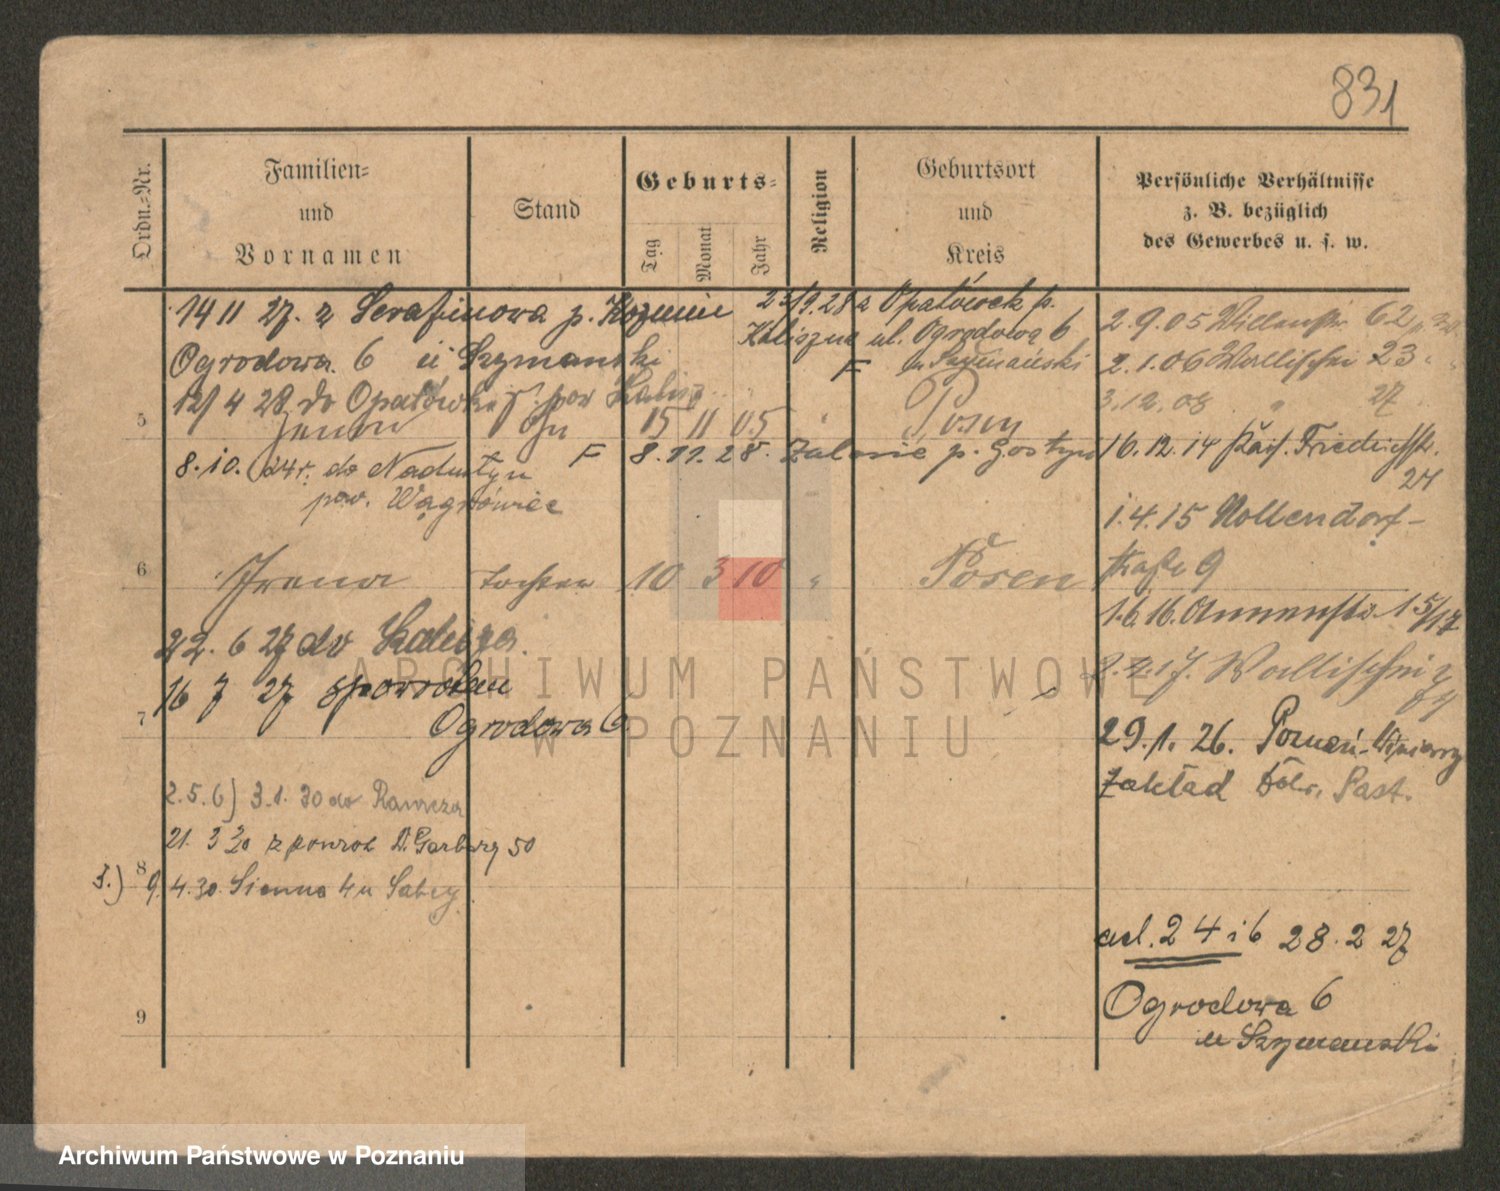 831
Ordn.-Nr.
Familien-
und
Vornamen
Stand
Geburts-
Tag
Monat
Jahr
Religion
Geburtsort
und
Kreis
Persönliche Verhältnisse
z. B. bezüglich
des Gewerbes u. s. w.
14 11 27. z Serafinowa p. Kozmin
Ogrodowa. 6 u Szymanski
12/4 28 do Opatówka pow Kalisz
23/9.28 z Opatówek p.
Kalisz na ul. Ogrodową 6
u. Szymański
F
5
15 11 05 "
Posen
8.10. do
pow. Wągrowiec
F 8.11.28. Zalesie p. Gostyń
6
Irena
Tochter
10 3 10 "
Posen
22. 6 27 do Kalisza.
16 7 27 spowrotem
Ogrodowa 6.
7
2.5.6) 3.1.30 do Rawicza
21. 3 30 z powrot D. Garbary 50
8
5.) 9. 4.30. Sienna 4 u
9
2.9.05 62
2.1.06 Wallischei 23
3.12.08 " 27
16.12.14 Kais. Friedrichstr.
27
1.4.15 Nollendorf-
straße 9
1.6.16. Annenstr. 15/17
2.4.17. Wallischei
29.1.26. Poznań-Winiary
Zakład
ad. 2 4 i 6 28.2 27
Ogrodowa 6
u Szymanski
ARCHIWUM PAŃSTWOWE
W POZNANIU
Archiwum Państwowe w Poznaniu